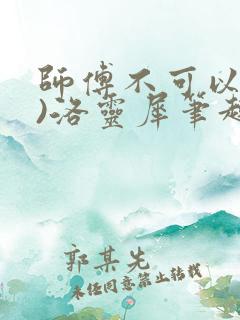 師傅不可以
)洛靈犀筆趣
郭某先
未經同意禁止轉載